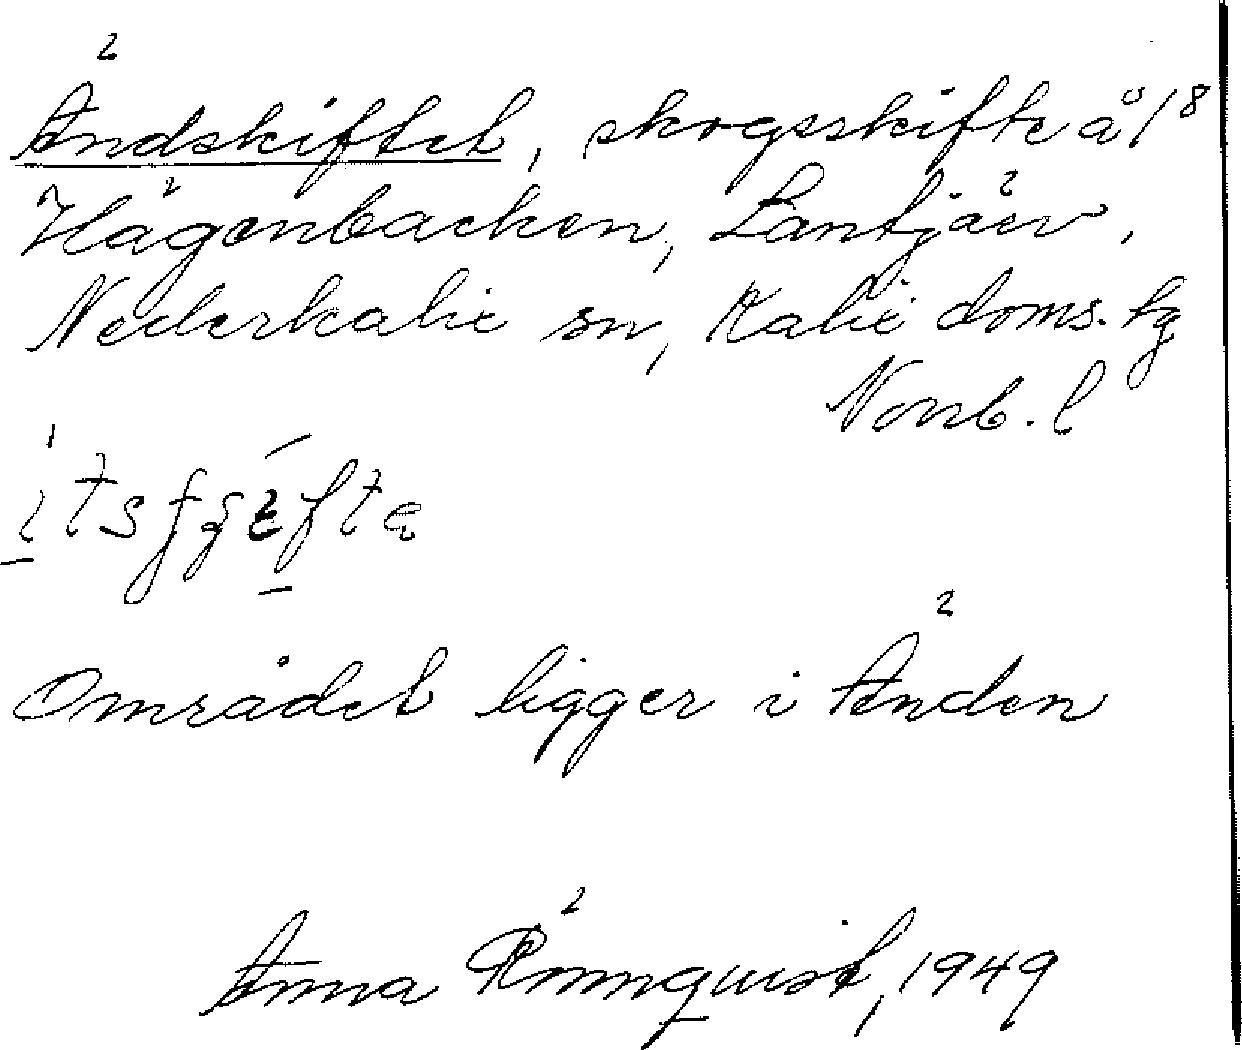 Ändskiftet, skogsskifte å 1/8
Hägenbäcken, Låntjärv,
Nederkalix sn, Kalix doms. tg
Norrb. l
Området ligger i Änden
Anna Rönnquist, 1949